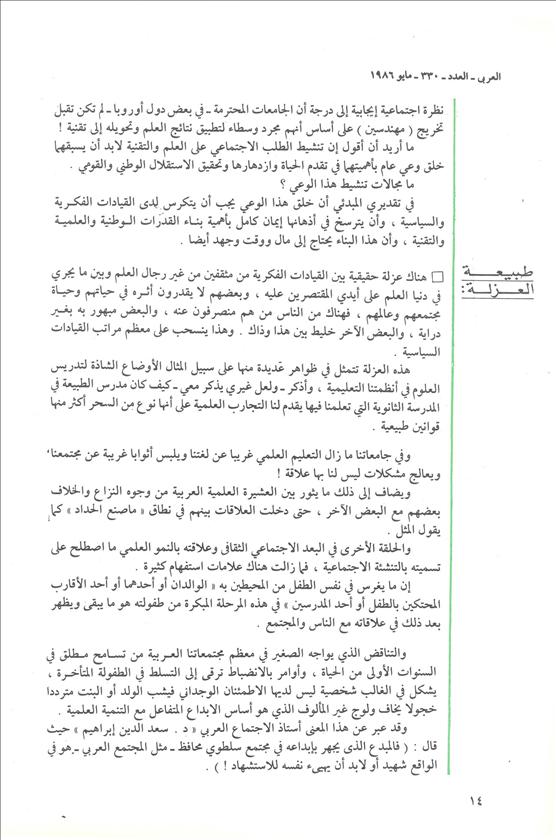 العربي ـ العدد ـ ٣٣٠ ـ مايو ١٩٨٦
نظرة اجتماعية إيجابية إلى درجة أن الجامعات المحترمة ـ في بعض دول أوروبا ـ لم تكن تقبل
تخريج ( مهندسين ) على أساس أنهم مجرد وسطاء لتطبيق نتائج العلم وتحويله إلى تقنية !
ما أريد أن أقول إن تنشيط الطلب الاجتماعي على العلم والتقنية لابد أن يسبقهما
خلق وعي عام بأهميتهما في تقدم الحياة وازدهارها وتحقيق الاستقلال الوطني والقومي .
ما مجالات تنشيط هذا الوعي ؟
في تقديري المبدئي أن خلق هذا الوعي يجب أن يتكرس لدى القيادات الفكرية
والسياسية ، وأن يترسخ في أذهانها إيمان كامل بأهمية بناء القدرات الوطنية والعلمية
والتقنية ، وأن هذا البناء يحتاج إلى مال ووقت وجهد أيضا .
طبيعة
العزلة:
□ هناك عزلة حقيقية بين القيادات الفكرية من مثقفين من غير رجال العلم وبين ما يجري
في دنيا العلم على أيدي المقتصرين عليه ، وبعضهم لا يقدرون أثره في حياتهم وحياة
مجتمعهم وعالمهم ، فهناك من الناس من هم منصرفون عنه ، والبعض مبهور به بغير
دراية ، والبعض الآخر خليط بين هذا وذاك . وهذا ينسحب على معظم مراتب القيادات
السياسية .
هذه العزلة تتمثل في ظواهر عديدة منها على سبيل المثال الأوضاع الشاذة لتدريس
العلوم في أنظمتنا التعليمية ، وأذكر ـ ولعل غيري يذكر معي ـ كيف كان مدرس الطبيعة في
المدرسة الثانوية التي تعلمنا فيها يقدم لنا التجارب العلمية على أنها نوع من السحر أكثر منها
قوانين طبيعية .
وفي جامعاتنا ما زال التعليم العلمي غريبا عن لغتنا ويلبس أثوابا غريبة عن مجتمعنا،
ويعالج مشكلات ليس لنا بها علاقة !
ويضاف إلى ذلك ما يثور بين العشيرة العلمية العربية من وجوه النزاع والخلاف
بعضهم مع البعض الآخر ، حتى دخلت العلاقات بينهم في نطاق « ماصنع الحداد » كما
يقول المثل .
والحلقة الأخرى في البعد الاجتماعي الثقافى وعلاقته بالنمو العلمي ما اصطلح على
تسميته بالتنشئة الاجتماعية ، فما زالت هناك علامات استفهام كثيرة .
إن ما يغرس في نفس الطفل من المحيطين به « الوالدان أو أحدهما أو أحد الأقارب
المحتكين بالطفل أو أحد المدرسين » في هذه المرحلة المبكرة من طفولته هو ما يبقى ويظهر
بعد ذلك في علاقاته مع الناس والمجتمع .
والتناقض الذي يواجه الصغير في معظم مجتمعاتنا العربية من تسامح مطلق في
السنوات الأولى من الحياة ، وأوامر بالانضباط ترقى إلى التسلط في الطفولة المتأخرة ،
يشكل في الغالب شخصية ليس لديها الاطمئنان الوجداني فيشب الولد أو البنت مترددا
خجولا يخاف ولوج غير المألوف الذي هو أساس الابداع المتفاعل مع التنمية العلمية .
وقد عبر عن هذا المعنى أستاذ الاجتماع العربي « د . سعد الدين إبراهيم » حيث
قال : ( فالمبدع الذى يجهر بإبداعه في مجتمع سلطوي محافظ ـ مثل المجتمع العربي ـ هو في
الواقع شهيد أو لابد أن يهيىء نفسه للاستشهاد ! ) .
١٤